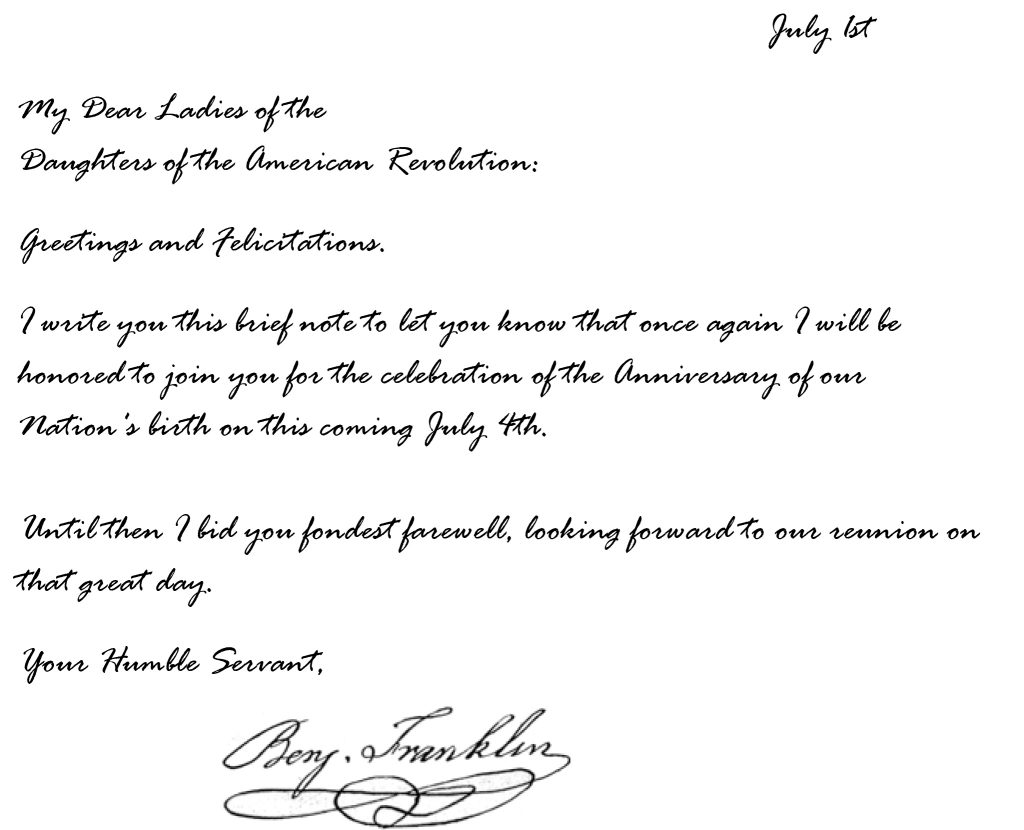 July 1st
My Dear Ladies of the
Daughters of the American Revolution:
Greetings and Felicitations.
I write you this brief note to let you know that once again I will be
honored to join you for the celebration of the Anniversary of our
Nation's birth on this coming July 4th.
Until then I bid you fondest farewell, looking forward to our reunion on
that great day.
Your Humble Servant,
Benj. Franklin